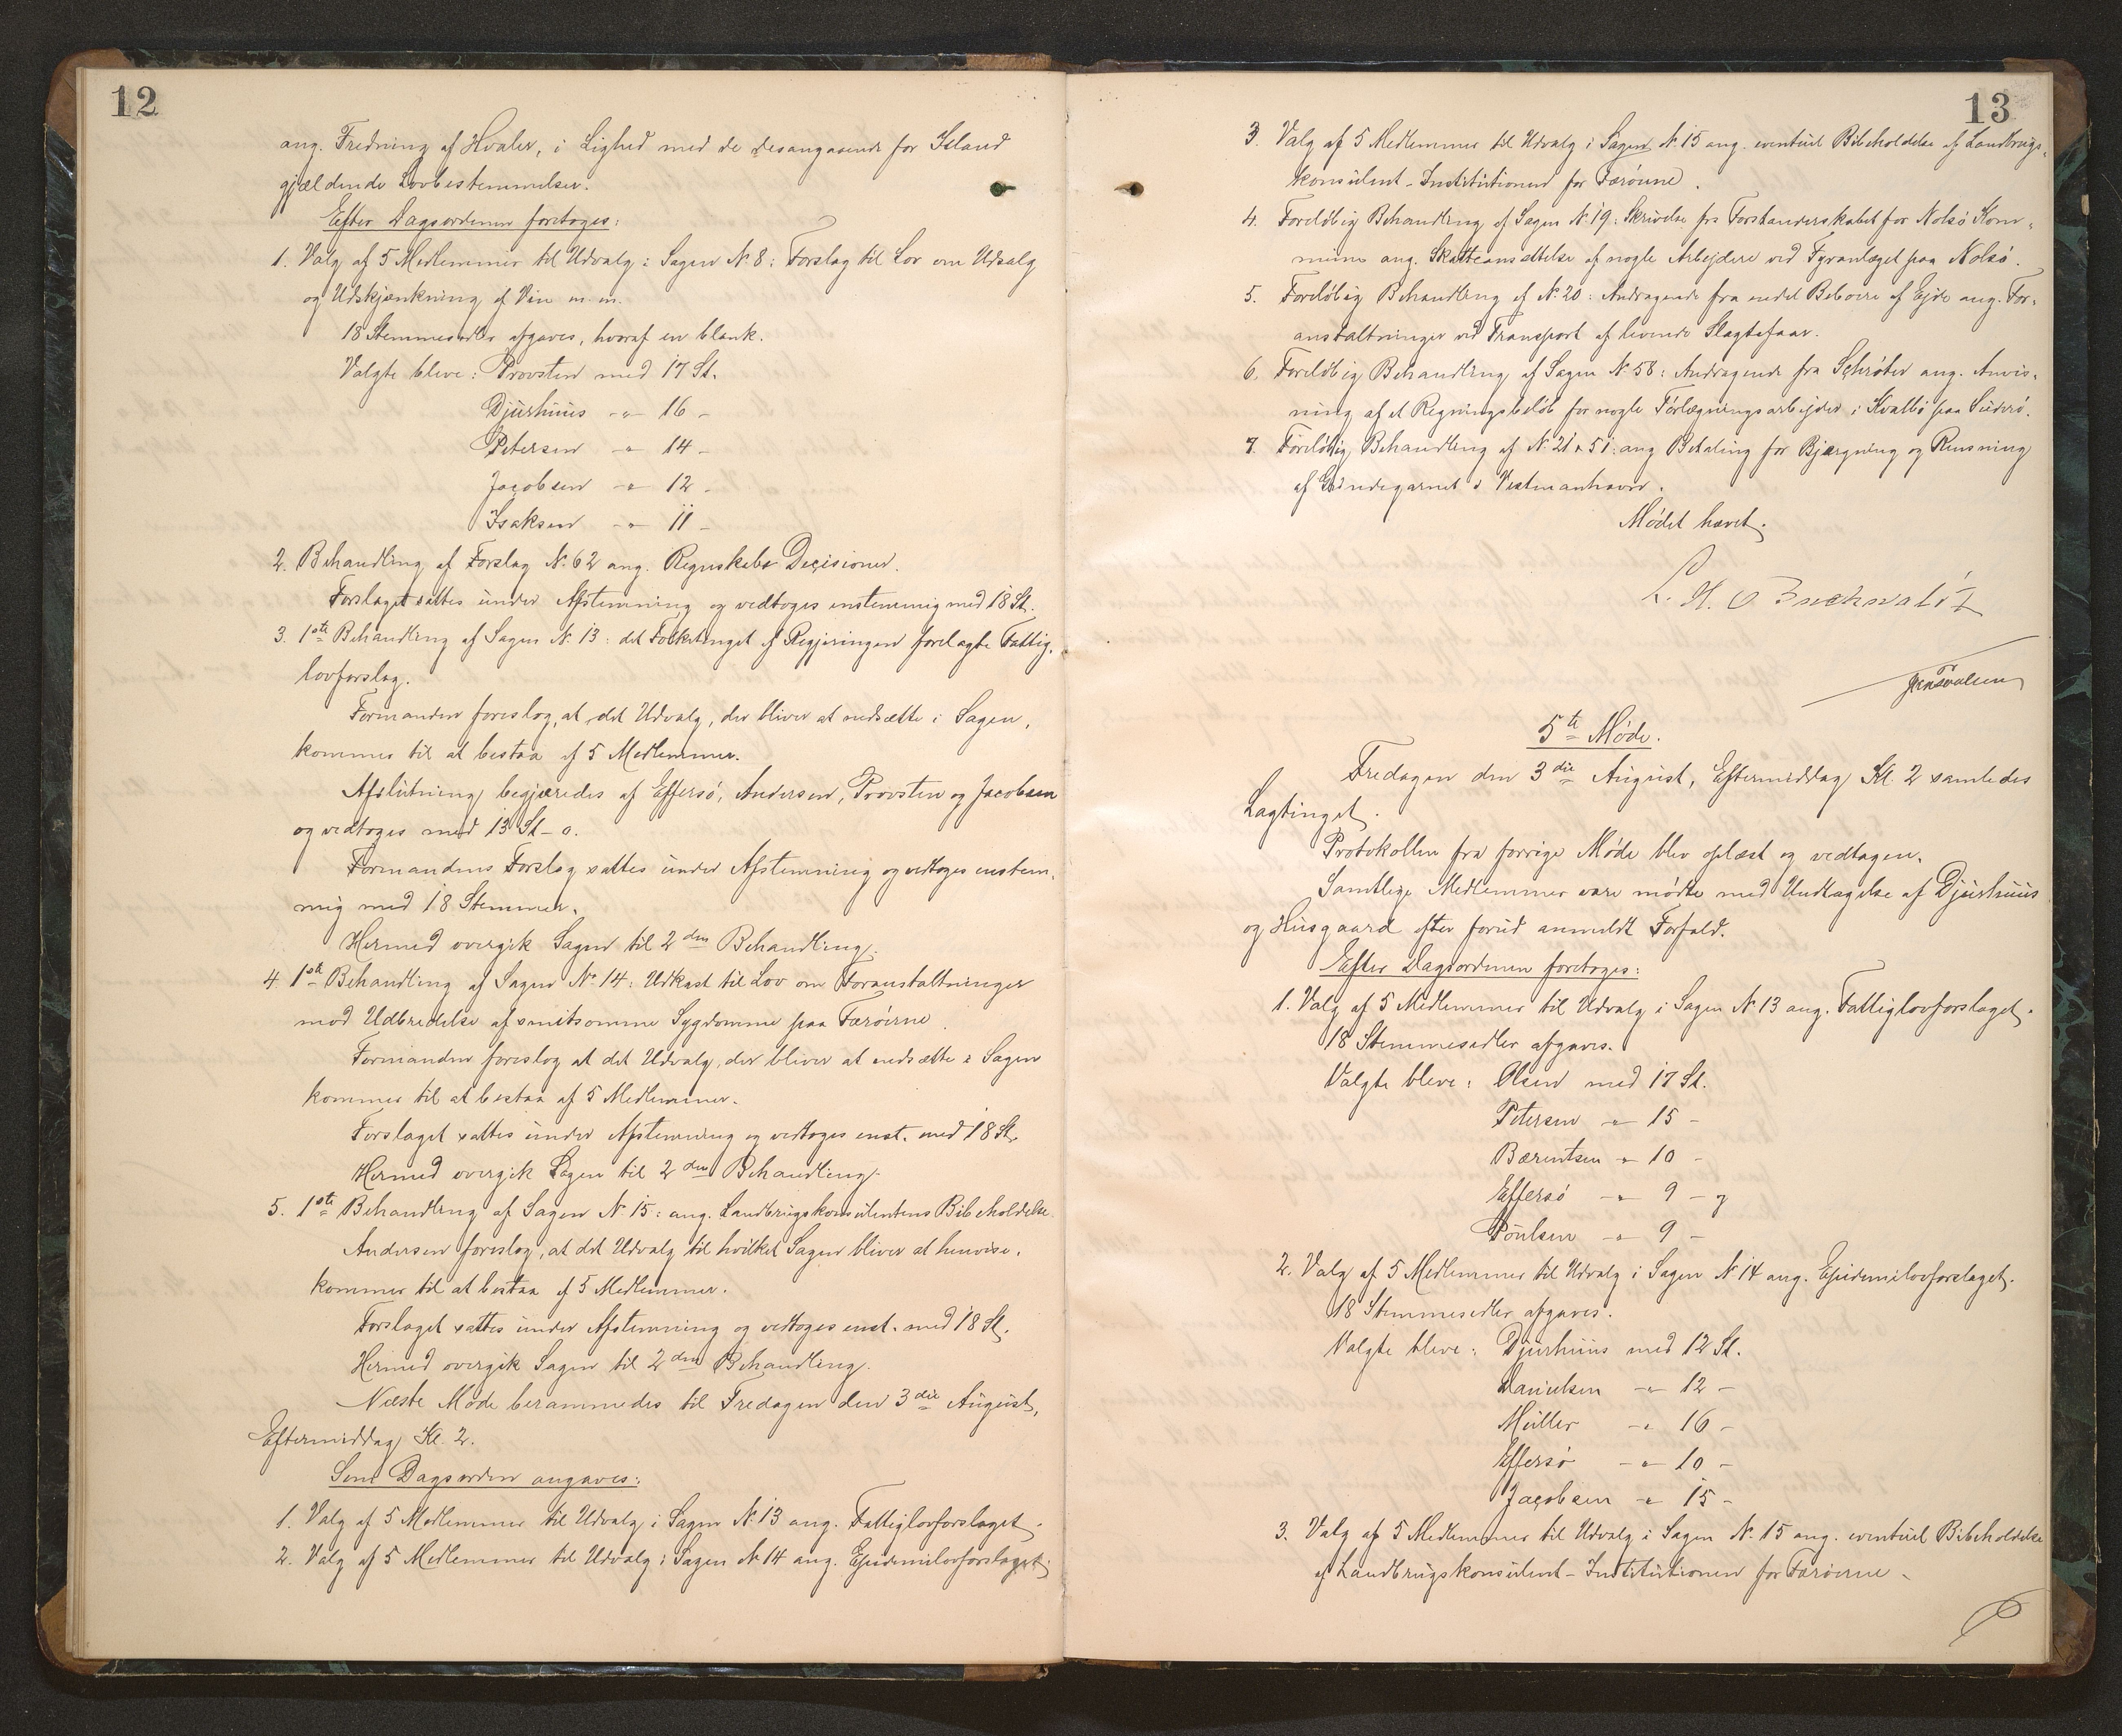 12
ang. Fredning af Hvaler, i Lighed med de desangaaende for Island
gjældende Lovbestemmelser.
Efter Dagsordenen foretoges:
1. Valg af 5 Medlemmer til Udvalg i Sagen N. 8: Forslag til Lov om Udsalg
og Udskjænkning af Vin m. m.
18 Stemmesedler afgaves, hvoraf en blank.
Valgte bleve: Provsten med 17 St.
Djurhuus -"- 16 -
Petersen -"- 14 -
Jacobsen -"- 12 -
Isaksen -"- 11 -
2. Behandling af Forslag N. 62 ang. Regnskabs Decisioner.
Forslaget sattes under Afstemning og vedtoges enstemmig med 18 St.
3. 1ste Behandling af Sagen N. 13: det Folketinget af Regjeringen forelagte Fattig-
lovforslag.
Formanden foreslog, at det Udvalg, der bliver at nedsætte i Sagen,
kommer til at bestaa af 5 Medlemmer.
Afslutning begjæredes af Effersø, Andersen, Provsten og Jacobsen
og vedtoges med 13 St - 0.
Formandens Forslag sattes under Afstemning og vedtoges enstem-
mig med 18 Stemmer.
Hermed overgik Sagen til 2den Behandling.
4. 1ste Behandling af Sagen No. 14: Udkast til Lov om Foranstaltninger
mod Udbredelse af smitsomme Sygdomme paa Færøerne.
Formanden foreslog at det Udvalg, der bliver at nedsætte i Sagen
kommer til at bestaa af 5 Medlemmer.
Forslaget sattes under Afstemning og vedtoges enst. med 18 St.
Hermed overgik Sagen til 2den Behandling.
5. 1ste Behandling af Sagen N. 15: ang. Landbrugskonsulentens Bibeholdelse.
Andersen foreslog, at det Udvalg til hvilket Sagen bliver at henvise,
kommer til at bestaa af 5 Medlemmer.
Forslaget sattes under Afstemning og vedtoges enst. med 18 St.
Hermed overgik Sagen til 2den Behandling.
Næste Møde berammedes til Fredagen den 3die August,
Eftermiddag Kl. 2.
Som Dagsorden angaves:
1. Valg af 5 Medlemmer til Udvalg i Sagen N. 13 ang. Fattiglovforslaget.
2. Valg af 5 Medlemmer til Udvalg i Sagen N. 14 ang. Epidemilovforslaget.
13
3. Valg af 5 Medlemmer til Udvalg i Sagen N. 15 ang. eventuel Bibeholdelse af Landbrugs-
konsulent-Institutionen for Færøerne.
4. Foreløbig Behandling af Sagen N. 19: Skrivelse fra Forstanderskabet for Nolsø Kom-
mune ang. Skatteansættelse af nogle Arbejdere ved Fyranlæget paa Nolsø.
5. Foreløbig Behandling af N. 20: Andragende fra endel Beboere af Ejde ang. For-
anstaltninger ved Transport af levende Slagtefaar.
6. Foreløbig Behandling af Sagen N. 58: Andragende fra Schrøter ang. Anvis-
ning af et Regningsbeløb for nogle Forlægningsarbejder i Kvalbø paa Suderø.
7. Foreløbig Behandling af N. 21 & 51: ang Betaling for Bjærgning og Rensning
af Grindegarnet i Vestmanhavn.
Mødet hævet.
L. H. O Buchwaldt
5te Møde.
Fredagen den 3die August, Eftermiddag Kl. 2 samledes
Lagtinget.
Protokollen fra forrige Møde blev oplæst og vedtagen.
Samtlige Medlemmer vare mødte med Undtagelse af Djurhuus
og Husgaard efter forud anmeldt Forfald.
Efter Dagsordenen foretoges:
1. Valg af 5 Medlemmer til Udvalg i Sagen N. 13 ang. Fattiglovforslaget.
18 Stemmesedler afgaves.
Valgte bleve: Olsen med 17 St.
Petersen -"- 15 -
Bærentsen -"- 10 -
Effersø -"- 9 - og
Poulsen -"- 9 -
2. Valg af 5 Medlemmer til Udvalg i Sagen N. 14 ang. Epidemilovforslaget.
18 Stemmesedler afgaves.
Valgte bleve: Djurhuus med 12 St.
Danielsen -"- 12 -
Müller -"- 16 -
Effersø -"- 10 -
Jacobsen -"- 15 -
3. Valg af 5 Medlemmer til Udvalg i Sagen N. 15 ang. eventuel Bibeholdelse
af Landbrugskonsulent-Institutionen for Færøerne.